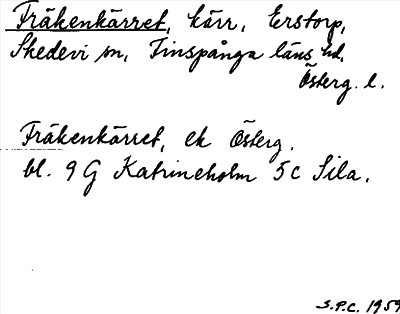 Fräkenkärret, kärr, Erstorp,
Skedevi sn, Finspånga läns hd,
Österg. l.
Fräkenkärret, ek Österg.
bl. 9 G Katrineholm 5 c Sila.
S.P.C. 1959